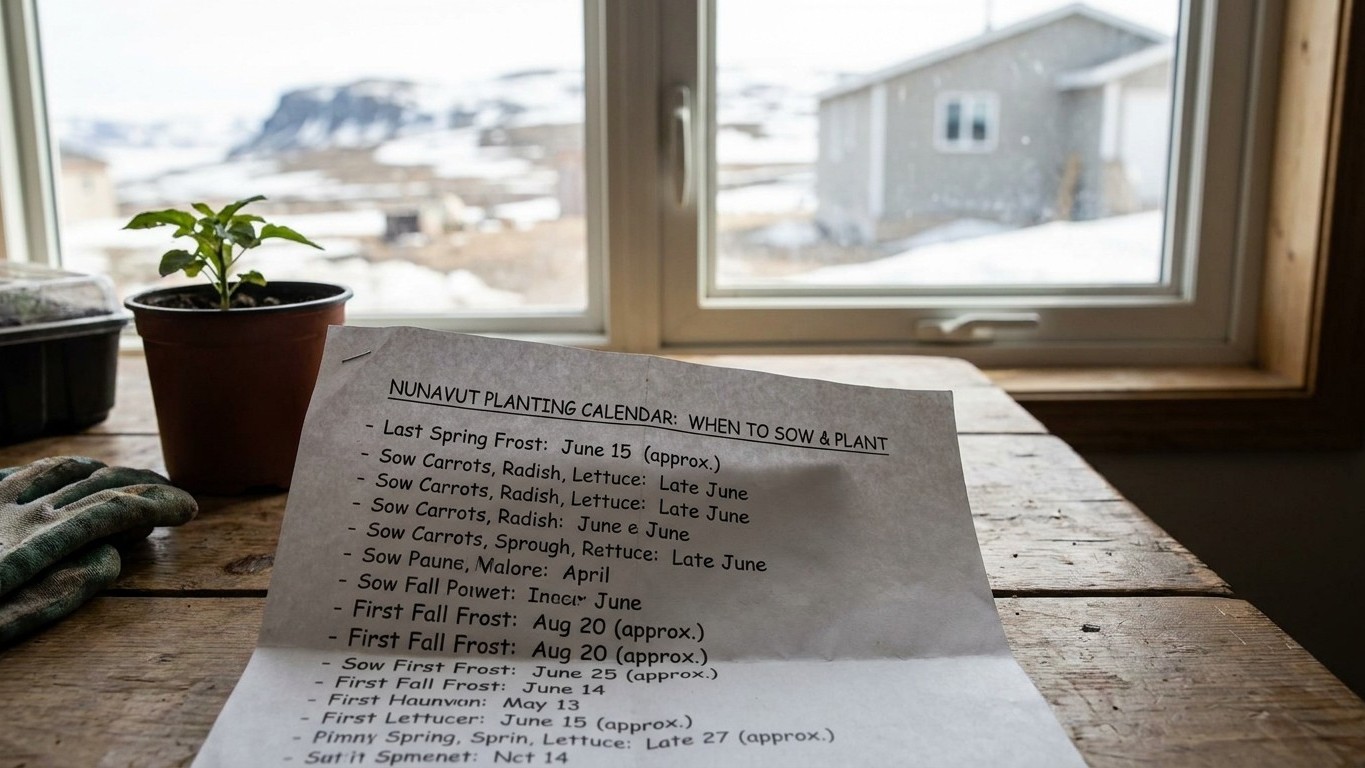 NUNAVUT PLANTING CALENDAR: WHEN TO SOW & PLANT
- Last Spring Frost: June 15 (approx.)
- Sow Carrots, Radish, Lettuce: Late June
- Sow Carrots, Radish, Lettuce: Late June
- Sow Carrots, Radish: June e June
- Sow Carrots, Sprough, Rettuce: Late June
- Sow Paune, Malore: April
- Sow Fall June
- First Fall Frost: Aug 20 (approx.)
- First Fall Frost: Aug 20 (approx.)
- Sow First Frost: June 25 (approx.)
- First Fall Frost: June 14
- First May 13
- First Lettucer: June 15 (approx.)
- Pimny Spring, Sprin, Lettuce: Late 27 (approx.)
- Spmenet: Nct 14